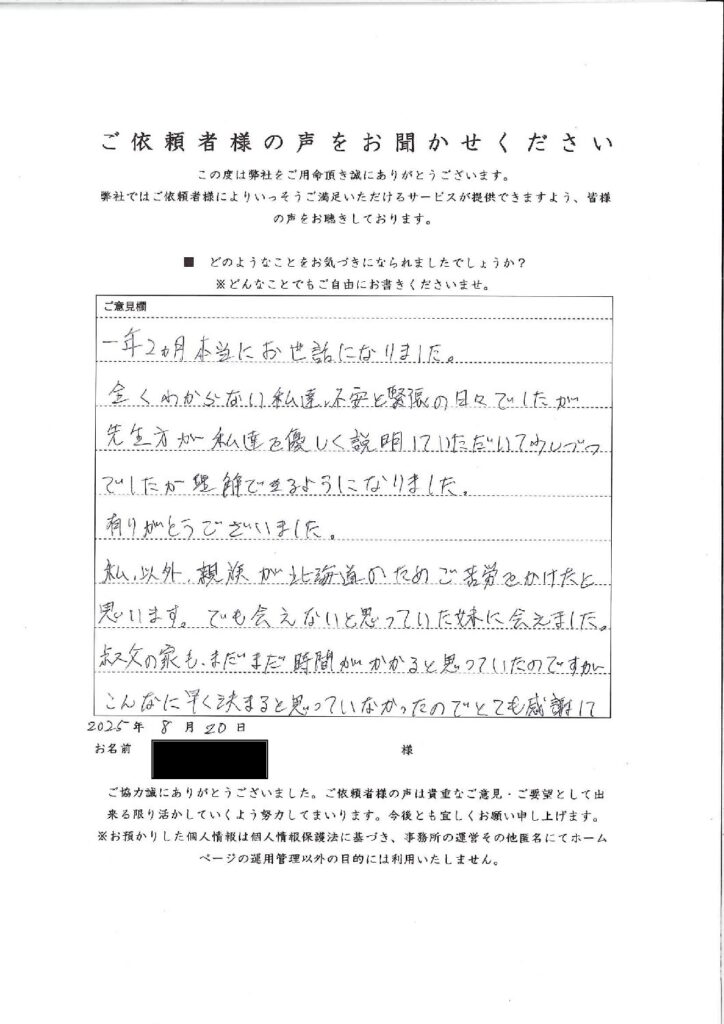 ご依頼者様の声をお聞かせください
この度は弊社をご用命頂き誠にありがとうございます。
弊社ではご依頼者様によりいっそうご満足いただけるサービスが提供できますよう、皆様
の声をお聴きしております。
■ どのようなことをお気づきになられましたでしょうか?
※どんなことでもご自由にお書きくださいませ。
ご意見欄
一年2ヵ月本当にお世話になりました。
全くわからない私達、不安と緊張の日々でしたが
先生方が私達を優しく説明していただいて少しづつ
でしたが理解できるようになりました。
有りがとうございました。
私、以外、親族が北海道のためご苦労をかけたと
思います。でも会えないと思っていた妹に会えました。
叔父の家も、まだまだ時間がかかると思っていたのですが
こんなに早く決まると思っていなかったのでとても感謝して
2025年 8月20日
お名前 様
ご協力誠にありがとうございました。ご依頼者様の声は貴重なご意見・ご要望として出
来る限り活かしていくよう努力してまいります。今後とも宜しくお願い申し上げます。
※お預かりした個人情報は個人情報保護法に基づき、事務所の運営その他匿名にてホーム
ページの運用管理以外の目的には利用いたしません。